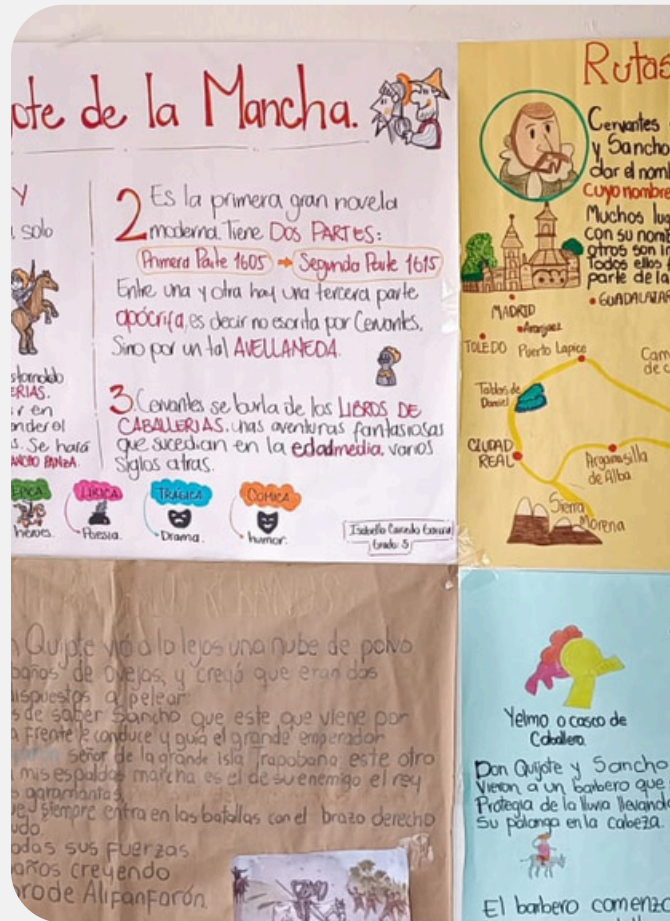 ote de la Mancha.
Y
solo
stornado
ERIAS.
ir en
nder el
s. Se hará
ANCHO PANZA.
2 Es la primera gran novela
moderna. Tiene DOS PARTES:
Primera Parte 1605 → Segunda Parte 1615
Entre una y otra hay una tercera parte
apócrifa, es decir no escrita por Cervantes.
Sino por un tal AVELLANEDA.
3. Cervantes se burla de los LIBROS DE
CABALLERIAS. unas aventuras fantasiosas
que sucedian en la edad media, varios
siglos atras.
EPICA
héroes.
LIRICA
Poesia.
TRAGICA
Drama.
COMICA
humor.
Isabella
Grado: 5
Rutas
Cervantes
y Sancho
dar el nom
cuyo nombre
Muchos lug
con su nom
otros son in
Todos ellos
parte de la
MADRID
GUADALAJAR
Aranjuez
TOLEDO
Puerto Lapice
Cam
de c
Tablas de
Daniel
CIUDAD
REAL
Argamasilla
de Alba
Sierra
Morena
Quijote vió a lo lejos una nube de polvo
baños de ovejas, y creyó que eran dos
ispuestos a pelear.
s de saber Sancho que este que viene por
a frente le conduce y guia el grande emperador
señor de la grande isla Trapobana: este otro
mis espaldas marcha es el de su enemigo el rey
garamantas
siempre entra en las batallas con el brazo derecho
udo.
odas sus fuerzas
años creyendo
aro de Alifanfarón.
Yelmo o casco de
Caballero.
Don Quijote y Sancho
Vieron a un barbero que
Protegia de la lluvia llevando
su palanga en la cabeza.
El barbero comenzo